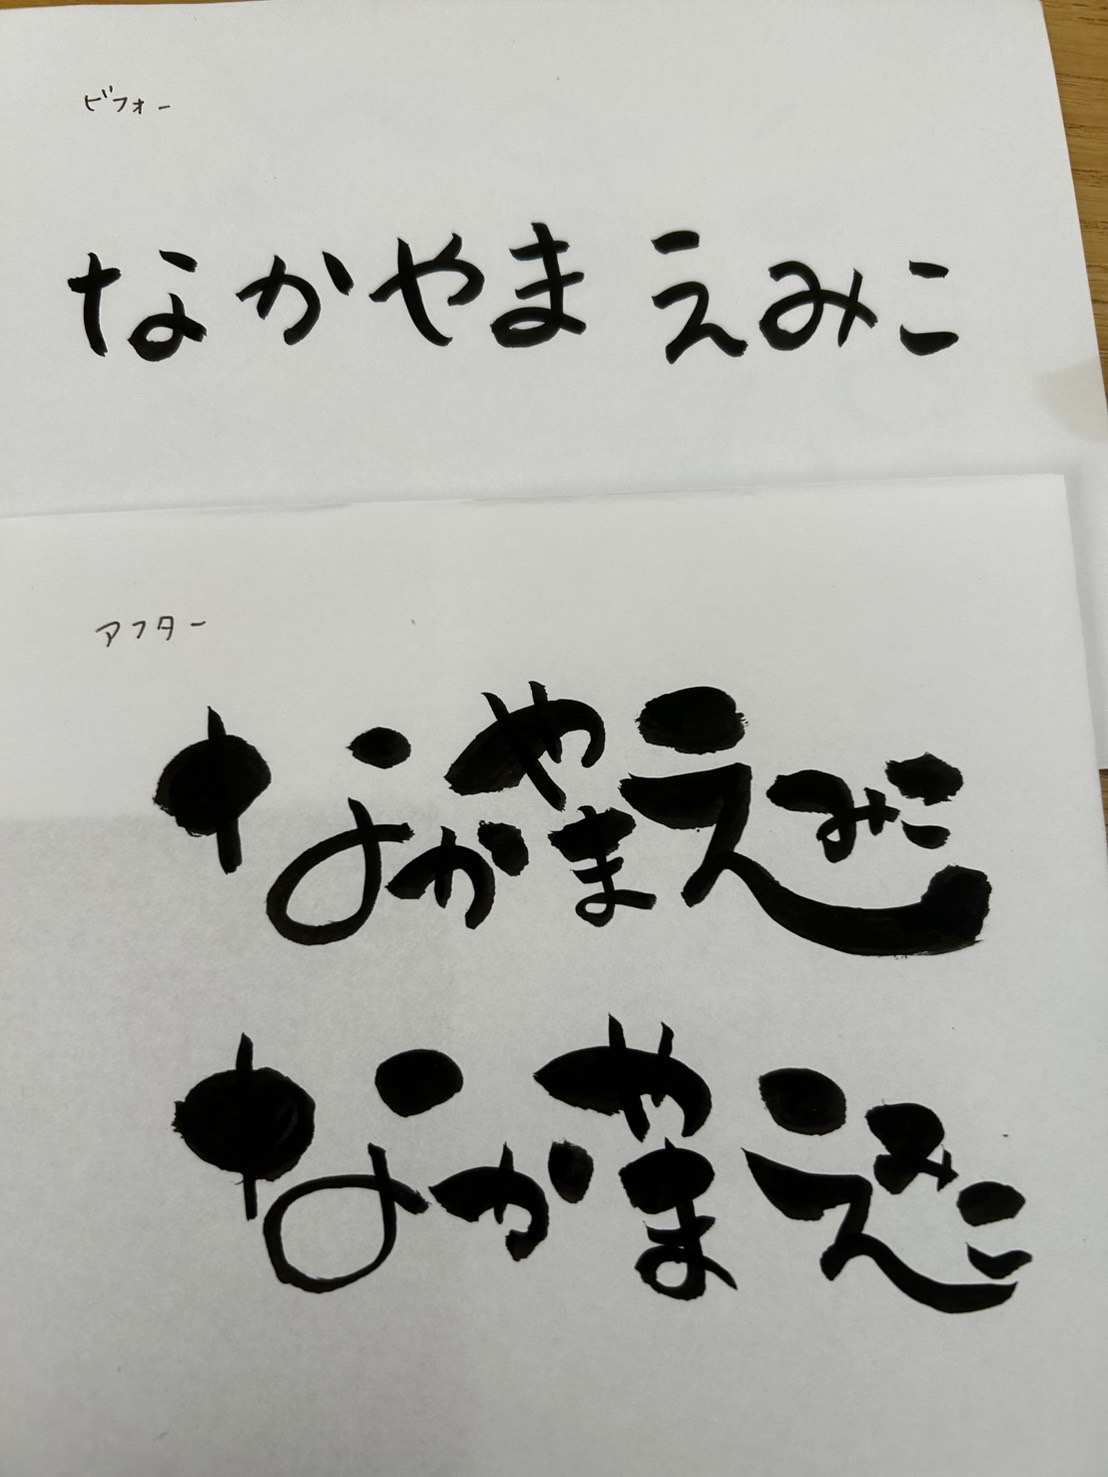 ビフォー
なかやま えみこ
アフター
なかやまえみこ
なかやまえみこ